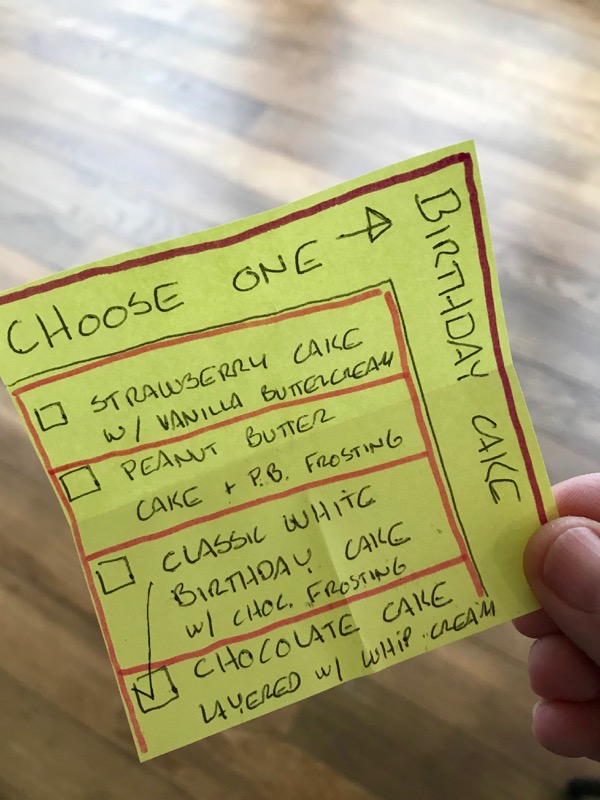 CHOOSE ONE →
BIRTHDAY CAKE
☐ STRAWBERRY CAKE
W/ VANILLA BUTTERCREAM
☐ PEANUT BUTTER
CAKE + P.B. FROSTING
☐ CLASSIC WHITE
BIRTHDAY CAKE
W/ CHOC. FROSTING
☑ CHOCOLATE CAKE
LAYERED W/ WHIP CREAM